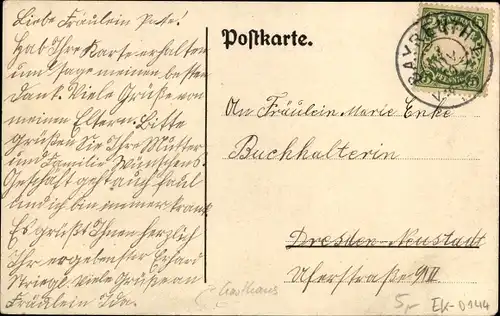 Liebe Fräulein
Hab Ihre Karte erhalten
und sage meinen besten
Dank. Viele Grüße von
meinen Eltern. Bitte
Grüßen Sie Ihre Mutter
und Familie Wünschens.
Geschäft geht auch faul
und ich bin immer krank.
Es grüßt Ihnen herzlich
Ihr ergebenster Erhard
Striegl. Viele Grüße an
Fräulein Ida.
Postkarte.
BAYREUTH 2
An Fräulein Marie Enke
Buchhalterin
Dresden-Neustadt
Uferstraße 9III
Gasthaus
5,- EK-0144